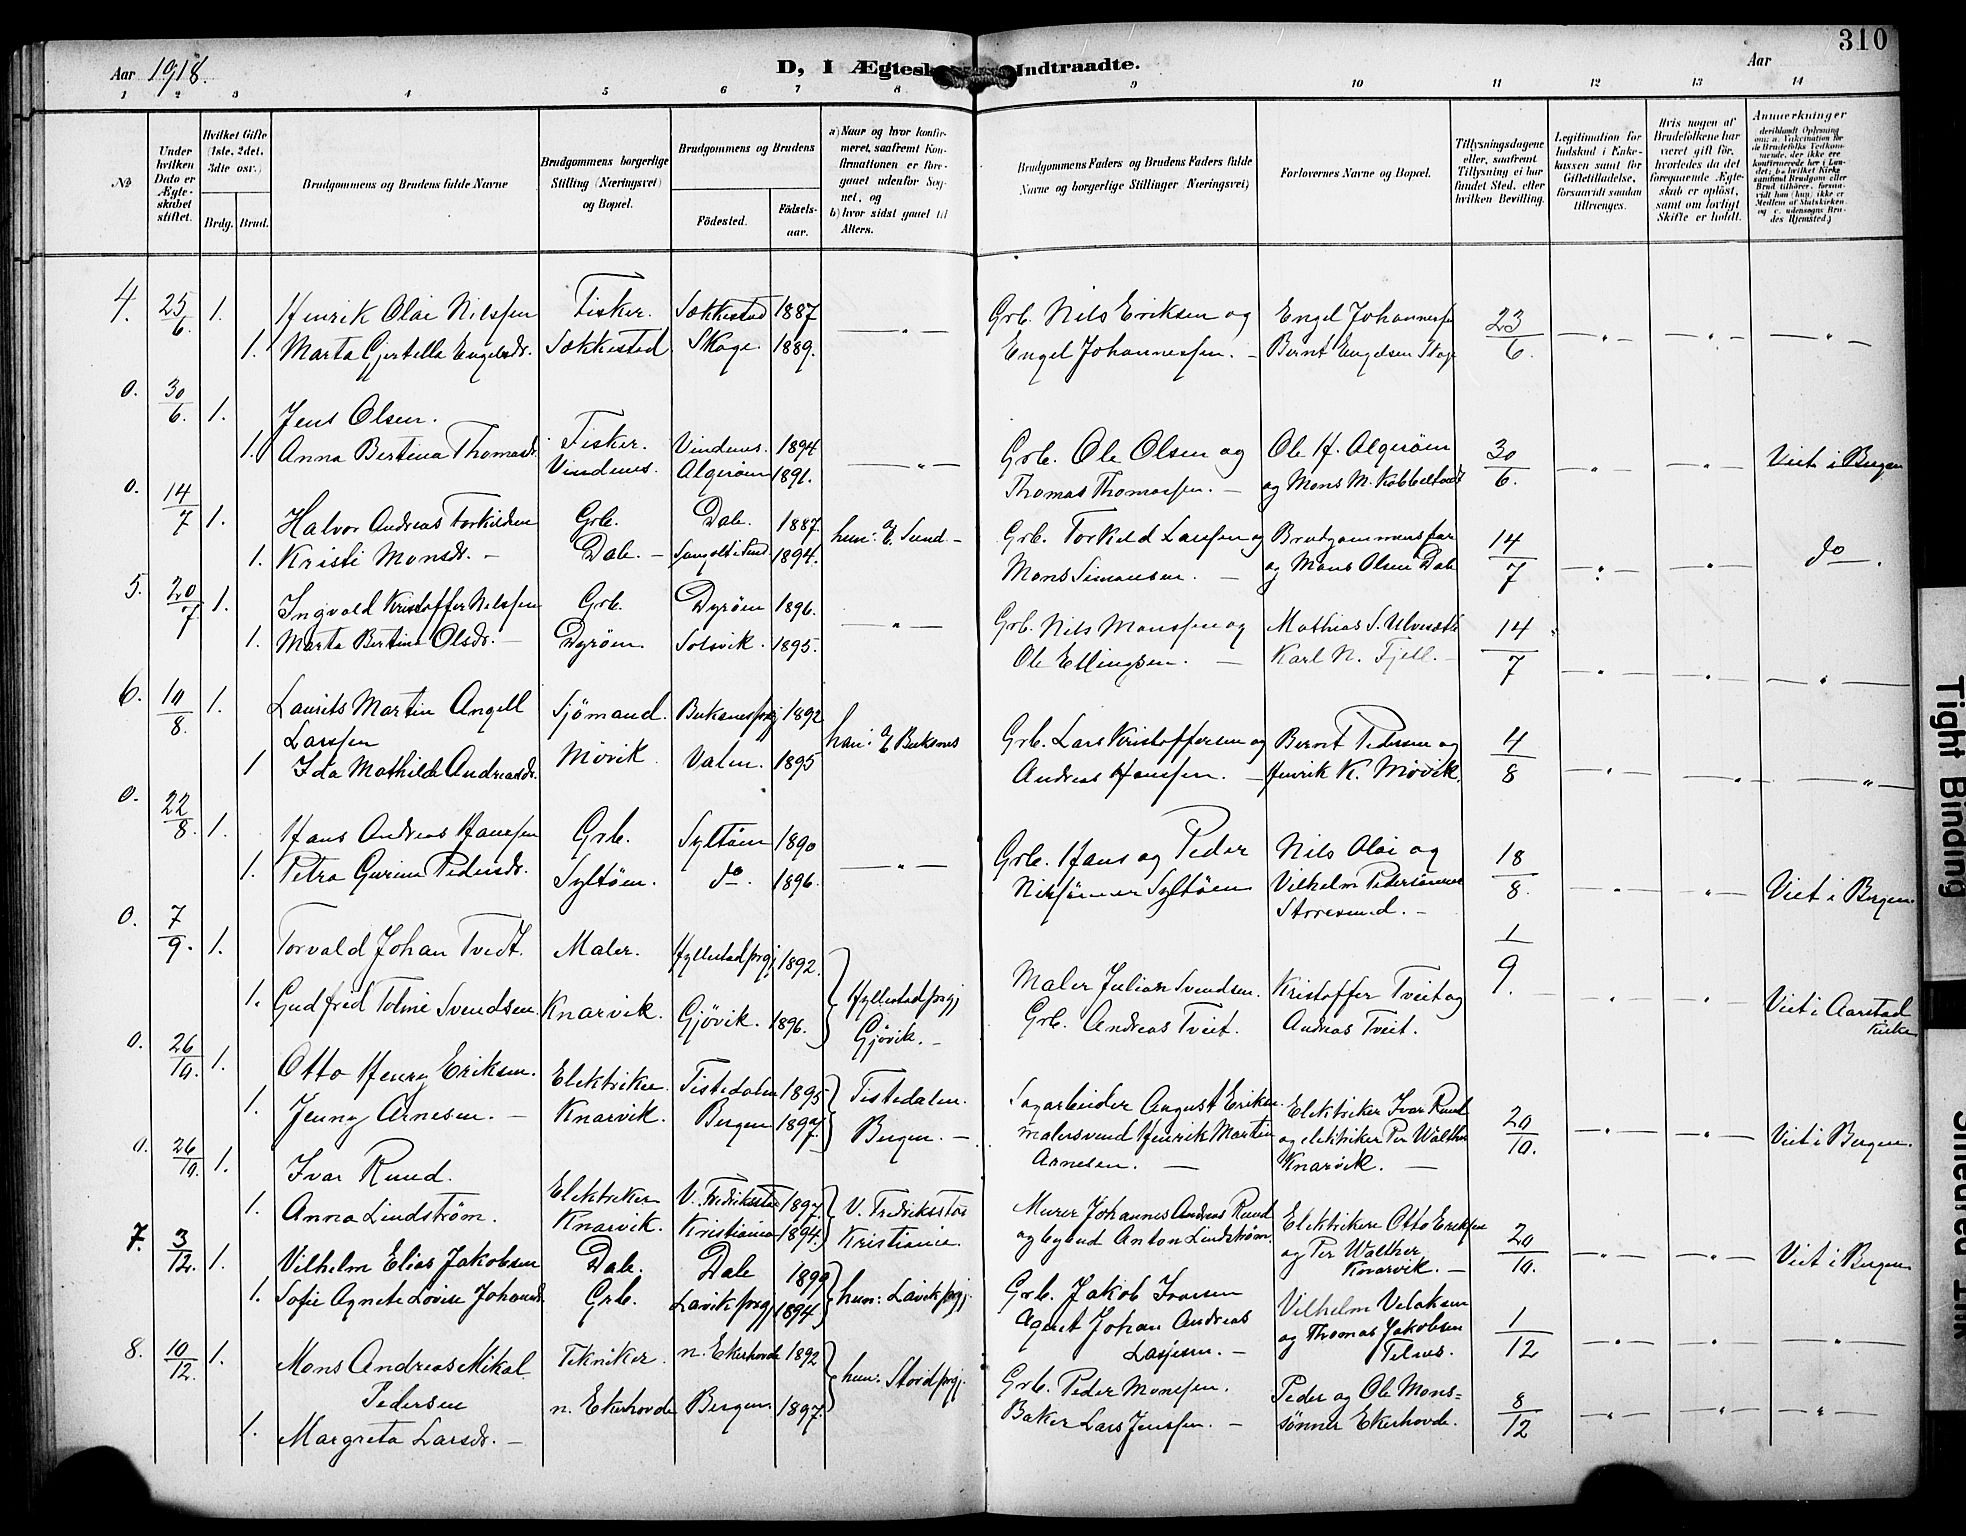 310
Aar 1918.
D, I Ægtesk Indtraadte.
Aar
1 2 3 4 5 6 7 8 9 10 11 12 13 14
No
Under hvilken Dato er Ægteskabet stiftet.
Hvilket Gifte (1ste, 2det, 3die osv.)
Brdg. Brud.
Brudgommens og Brudens fulde Navne
Brudgommens borgerlige Stilling (Næringsvei) og Bopæl.
Brudgommens og Brudens
Födested. Födselsaar.
a) Naar og hvor konfirmeret, saafremt Konfirmationen er foregaaet udenfor Sognet, og
b) hvor sidst gaaet til Alters.
Brudgommens Faders og Brudens Faders fulde Navne og borgerlige Stillinger (Næringsvei)
Forlovernes Navne og Bopæl.
Tillysningsdagene eller, saafremt Tillysning ei har fundet Sted, efter hvilken Bevilling.
Legitimation for Indskud i Enkekassen samt for Giftetilladelse, forsaavidt saadan tiltrænges.
Hvis nogen af Brudefolkene har været gift för, hvorledes da det foregaaende Ægteskab er oplöst, samt om lovligt Skifte er holdt.
Anmerkninger
4. 25/6 1. Henrik Olai Nilssen Fisker. Sækkestad 1887 — " — Grb. Nils Eriksen og Engel Johannessen 23/6 — " — — " — — " —
1. Marta Gjertella Engelsdr. Sækkestad Skoge 1889. Engel Johannessen. — Bernt Engelsen Skoge
0. 30/6. 1. Jens Olsen. Fisker. Vindenes. 1894 — " — Grb. Ole Olsen og Ole H. Algeröen 30/6. — " — — " — Viet i Bergen
1. Anna Bertina Thomasdr. Vindenes. Algeröen 1891. Thomas Thomassen. — og Mons M. Kobbeltvedt
0. 14/7 1. Halvor Andreas Torkildsen Grb. Dale. 1887. hun: i Sund — Grb. Torkild Larssen og Brudgommens far 14/7 — " — — " — do.
1. Kristi Monsdr. — Dale. — i Sund 1894. Mons Simonsen. — og Mons Olsen Dale
5. 20/7 1. Ingvald Kristoffer Nilssen Grb. Dyröen 1896. — " — Grb. Nils Monssen og Mathias S. Ulveseth 14/7 — " — — " — — " —
1. Marta Bertine Olsdr. — Dyröen. Solsvik. 1895. Ole Ellingsen. — Karl N. Fjell. —
6. 10/8. 1. Laurits Martin Angell Sjömand. Buksnes prgj 1892 han: i Buksnes Grb. Lars Kristoffersen og Bernt Pedersen og 4/8 — " — — " — — " —
Larssen
1 Ida Mathilde Andreasdr. Mövik Valen. 1895 Andreas Hanssen. — Henrik K. Mövik.
0. 22/8. 1. Hans Andreas Hanssen Grb. Syltöen 1890 — " — Grb. Hans og Peder Nils Olai og 18/8. — " — — " — Viet i Bergen.
1. Petra Gurine Pedersdr. Syltöen. do. 1896. Nilssönner Syltöen Vilhelm Pedersönner
Storesund. —
0. 7/9. 1. Torvald Johan Tvedt. Maler. Hyllestad prgj 1892. Hyllestad prgj Maler Julian Svendsen. Kristoffer Tveit og 1/9. " — " — Viet i Aarstad kirke
1. Gudfrid Toline Svendsen Knarvik. Gjövik. 1896. Gjövik. — Grb. Andreas Tveit. Andreas Tveit.
0. 26/10. 1. Otto Henry Eriksen. Elektriker Tistedalen 1895 Tistedalen. Sagarbeider August Eriksen. Elektriker Ivar Ruud 20/10. — " — — " — Viet i Bergen.
1. Jenny Arnesen. — Knarvik. Bergen 1897. Bergen. — malersvend Henrik Martin og elektriker Per Walther
Arnesen. — Knarvik. —
0. 26/10. 1. Ivar Ruud. Elektriker V. Fredriksstad 1897. V. Fredriksstad Murer Johannes Andreas Ruud Elektrikere Otto Eriksen 20/10. — " — — " — Viet i Bergen
1. Anna Lindström. Knarvik. Kristiania 1894. Kristiania. og bybud Anton Lindström. og Per Walther
Knarvik. —
7. 3/12. 1. Vilhelm Elias Jakobsen Dale. Dale 1899 hun: Lavik prgj. Grb. Jakob Ivarsen Vilhelm 1/12 — " — — " — — " —
1. Sofie Agnete Lovise Johansdr. Grb. Lavik prgj 1894. Agent Johan Andreas og Thomas Jakobsen
Telnes.
8. 10/12. 1. Mons Andreas Mikal Tekniker. n. Ekerhovde 1892 hun: Stord prgj. Grb. Peder Monssen. Peder og Ole Mons= 8/12 — " — — " — — " —
Pedersen n. Ekerhovde Bergen. 1897. Baker Lars Jenssen. — sönner Ekerhovde.
1. Margreta Larsdr. —
Tight Binding
Smeared Ink